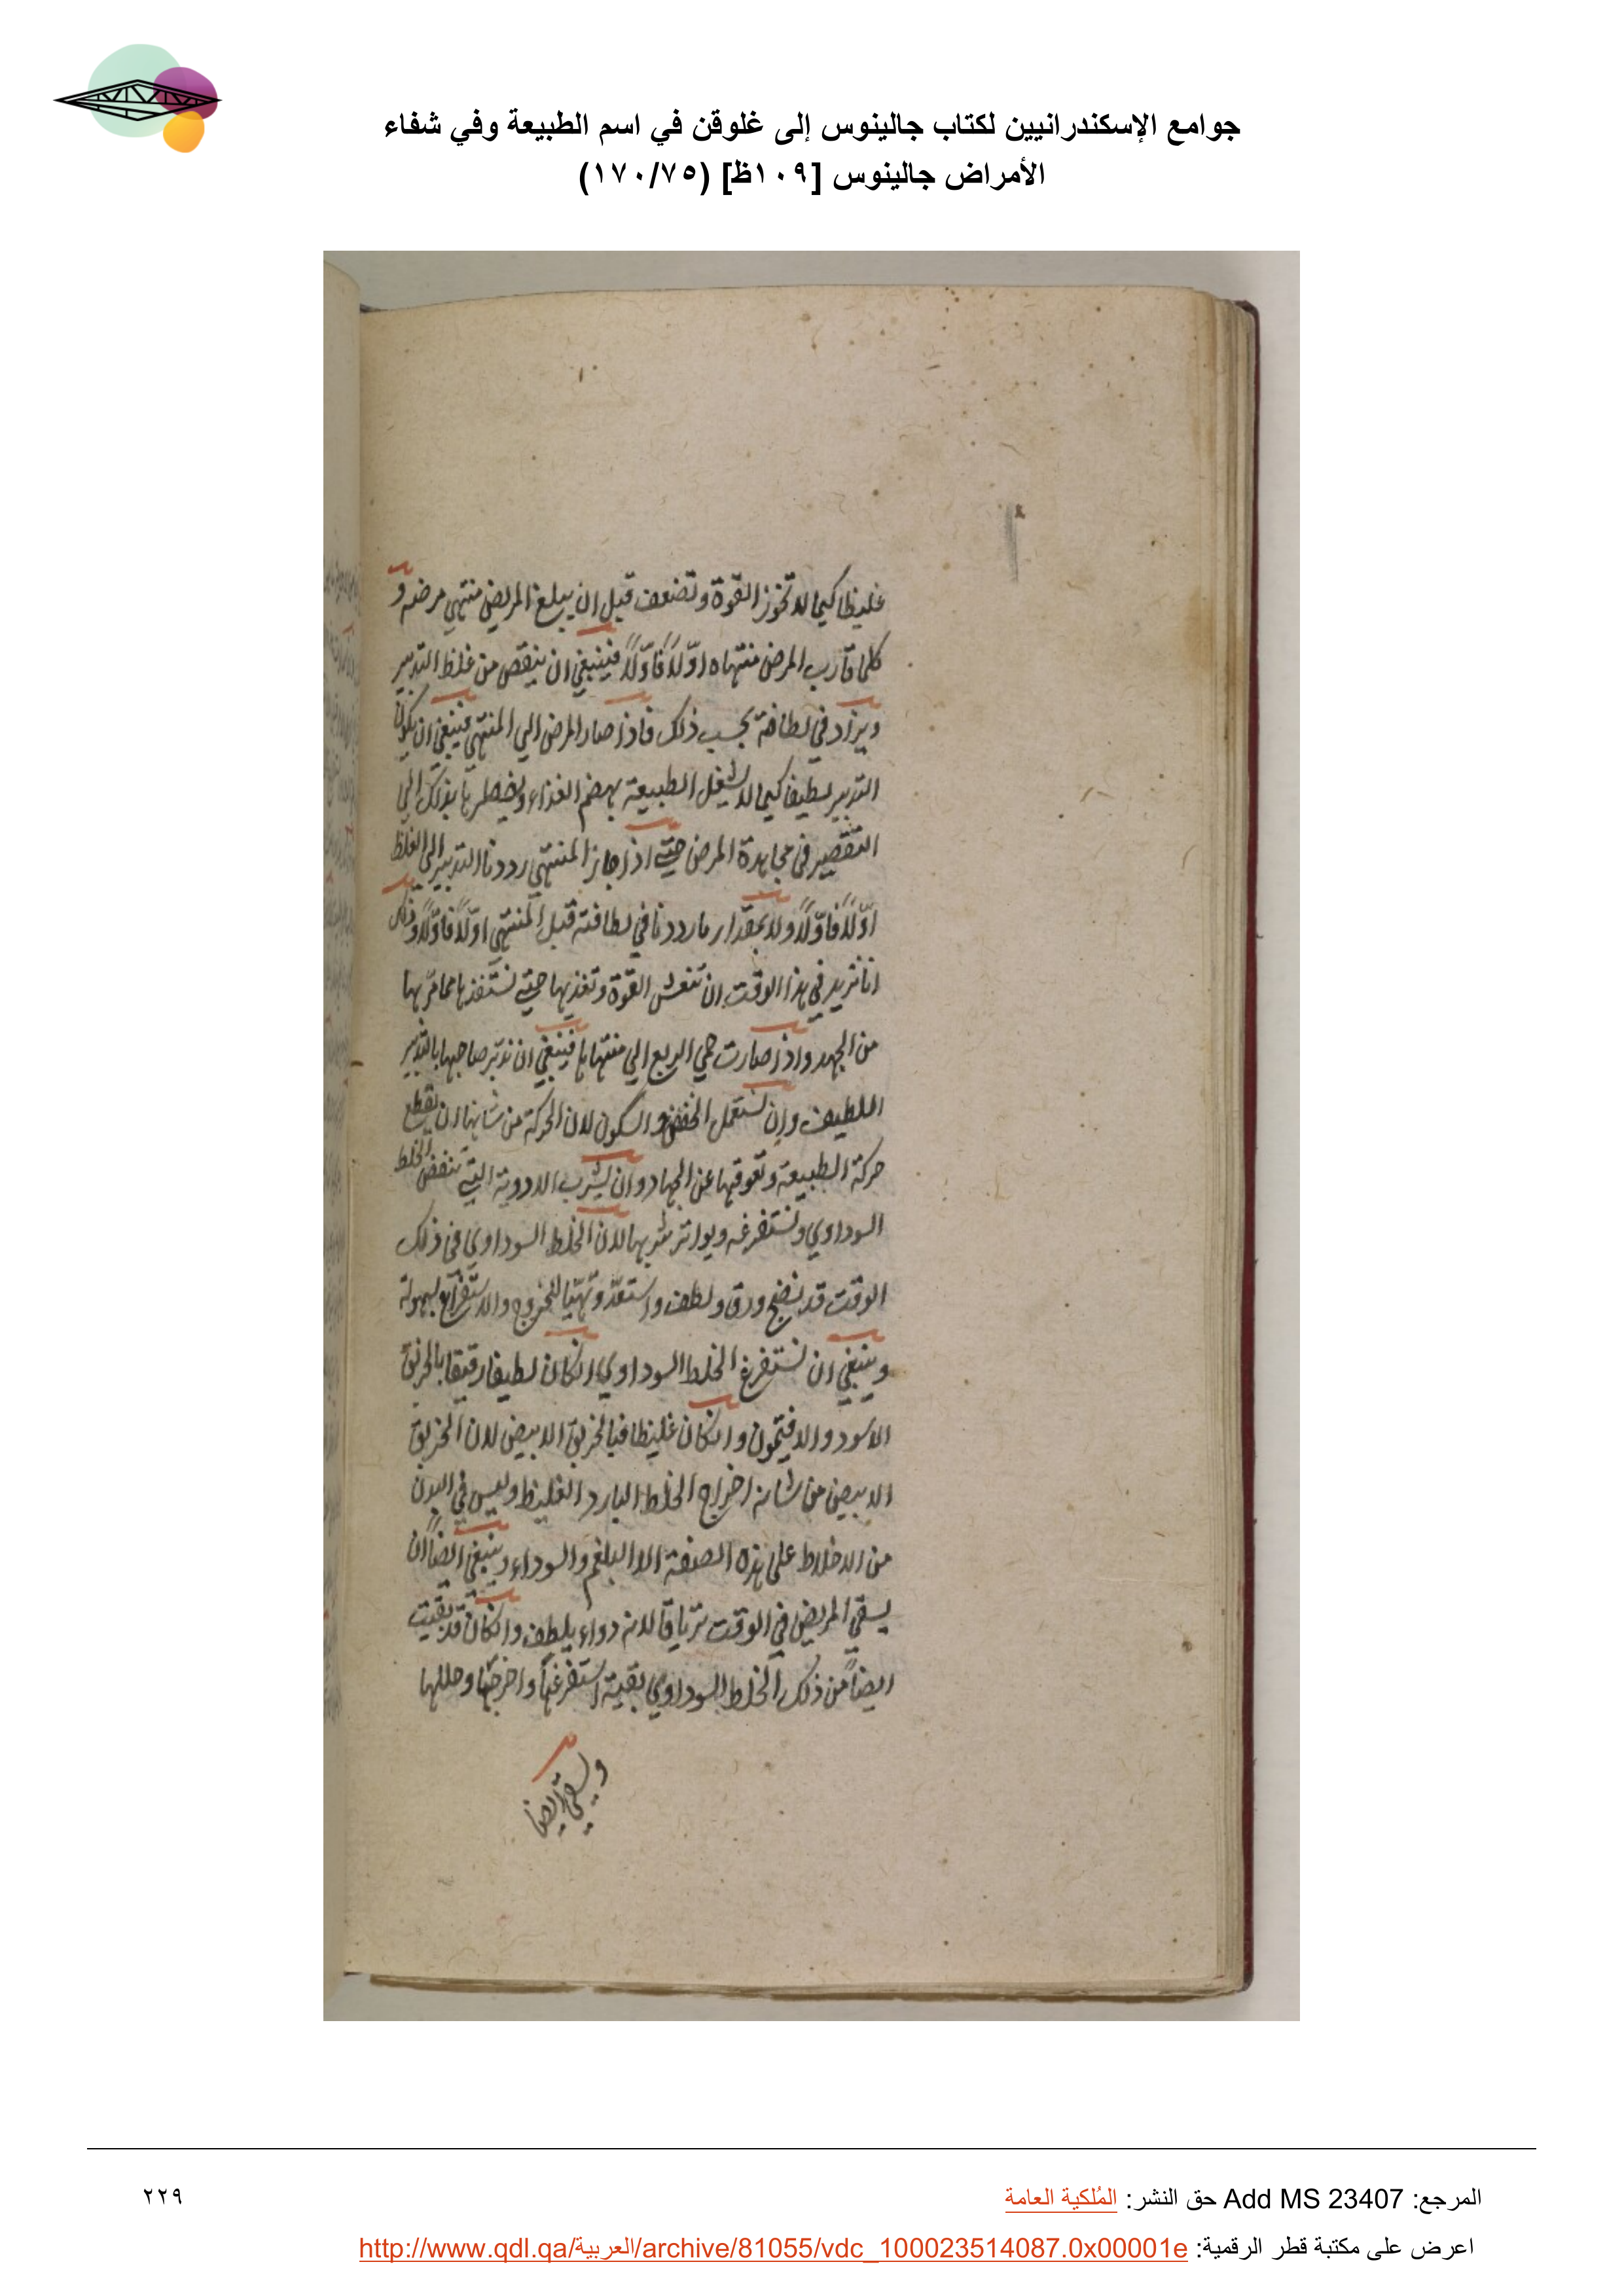 جوامع الإسكندرانيين لكتاب جالينوس إلى غلوقن في اسم الطبيعة وفي شفاء
الأمراض جالينوس [١٠٩ظ] (١٧٠/٧٥)
غليظا كيما لا تخور القوة وتضعف قبل ان يبلغ المريض منتهي مرضه و
كلما قارب المرض منتهاه اوّلاً فاوّلاً فينبغي ان ينقص من غلظ التدبير
ويزاد في لطافته بحسب ذلك فاذا صار المرض الي المنتهي فينبغي ان يكون
التدبير لطيفا كيما لا تشغل الطبيعة بهضم الغذاء ويضطرها بذلك الي
التقصير في مجاهدة المرض حتي اذا جاز المنتهي رددنا التدبير الي الغلظ
اوّلاً فاوّلاً ولا بمقدار ما رددنا في لطافته قبل المنتهي اوّلاً فاوّلاً وذلك
انا نريد في هذا الوقت ان تنعش القوة وتغذيها حتي نستنقذها مما مرّ بها
من الجهد واذا صارت حمي الربع الي منتهاها فينبغي ان ندبّر صاحبها بالتدبير
اللطيف وان نستعمل الخفض والسكون لان الحركة من شانها ان تقطع
حركة الطبيعة وتعوقها عن الجهاد وان يشرب الادوية التي تنفض الخلط
السوداوي وتستفرغه ويواتر شربها لان الخلط السوداوي في ذلك
الوقت قد نضج ورق ولطف واستعدّ وتهيّا للخروج والاستفراغ بسهولة
وينبغي ان نستفرغ الخلط السوداوي انكان لطيفا رقيقا بالخربق
الاسود والافتيمون وانكان غليظا فبالخربق الابيض لان الخربق
الابيض من شانه اخراج الخلط البارد الغليظ وليس في البدن
من الاخلاط علي هذه الصفة الا البلغم والسوداء وينبغي ايضاً ان
يسقي المريض في الوقت ترياقا لانه دواء يلطف وانكان قد بقيت
ايضاً من ذلك الخلط السوداوي بقية استفرغها واخرجها وحللها
ويسقي ايضا
المرجع: Add MS 23407 حق النشر: المُلكية العامة
٢٢٩
اعرض على مكتبة قطر الرقمية: http://www.qdl.qa/العربية/archive/81055/vdc_100023514087.0x00001e